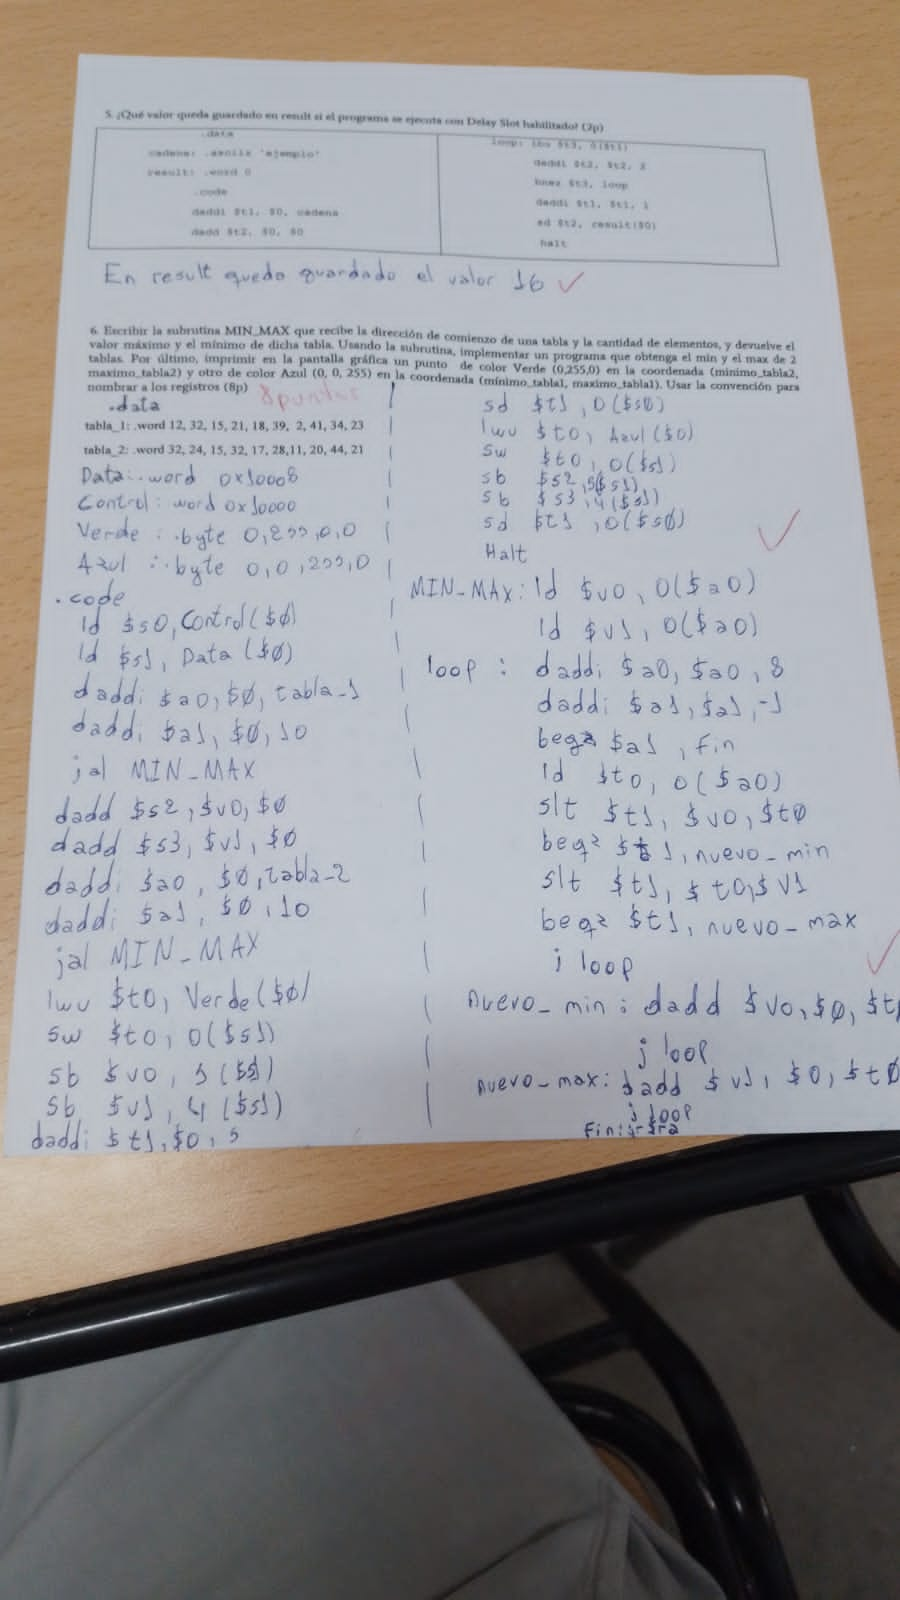 5. ¿Qué valor queda guardado en result si el programa se ejecuta con Delay Slot habilitado? (2p)
.data
cadena: .asciiz "ejemplo"
result: .word 0
.code
daddi $t1, $0, cadena
dadd $t2, $0, $0
loop: lbu $t3, 0($t1)
daddi $t2, $t2, 2
bnez $t3, loop
daddi $t1, $t1, 1
sd $t2, result($0)
halt
En result queda guardado el valor 16 ✓
6. Escribir la subrutina MIN_MAX que recibe la dirección de comienzo de una tabla y la cantidad de elementos, y devuelve el
valor máximo y el mínimo de dicha tabla. Usando la subrutina, implementar un programa que obtenga el min y el max de 2
tablas. Por último, imprimir en la pantalla gráfica un punto de color Verde (0,255,0) en la coordenada (minimo_tabla2,
maximo_tabla2) y otro de color Azul (0, 0, 255) en la coordenada (mínimo_tabla1, maximo_tabla1). Usar la convención para
nombrar a los registros (8p)
8 puntos
.data
tabla_1: .word 12, 32, 15, 21, 18, 39, 2, 41, 34, 23
tabla_2: .word 32, 24, 15, 32, 17, 28,11, 20, 44, 21
Data: .word 0x10008
Control: word 0x10000
Verde : .byte 0,255,0,0
Azul : .byte 0,0,255,0
.code
ld $s0, Control($0)
ld $s1, Data ($0)
daddi $a0, $0, tabla_1
daddi $a1, $0, 10
jal MIN_MAX
dadd $s2, $v0, $0
dadd $s3, $v1, $0
daddi $a0, $0, tabla_2
daddi $a1, $0, 10
jal MIN_MAX
lwu $t0, Verde($0)
sw $t0, 0($s1)
sb $v0, 5($s1)
sb $v1, 4($s1)
daddi $t1, $0, 5
sd $t1, 0($s0)
lwu $t0, Azul($0)
sw $t0, 0($s1)
sb $s2, 5($s1)
sb $s3, 4($s1)
sd $t1, 0($s0)
Halt
MIN_MAX: ld $v0, 0($a0)
ld $v1, 0($a0)
loop : daddi $a0, $a0, 8
daddi $a1, $a1, -1
beqz $a1, Fin
ld $t0, 0($a0)
slt $t1, $v0, $t0
beqz $t1, nuevo_min
slt $t1, $t0, $v1
beqz $t1, nuevo_max
j loop
nuevo_min : dadd $v0, $0, $t
j loop
nuevo_max: dadd $v1, $0, $t0
j loop
Fin: jr $ra